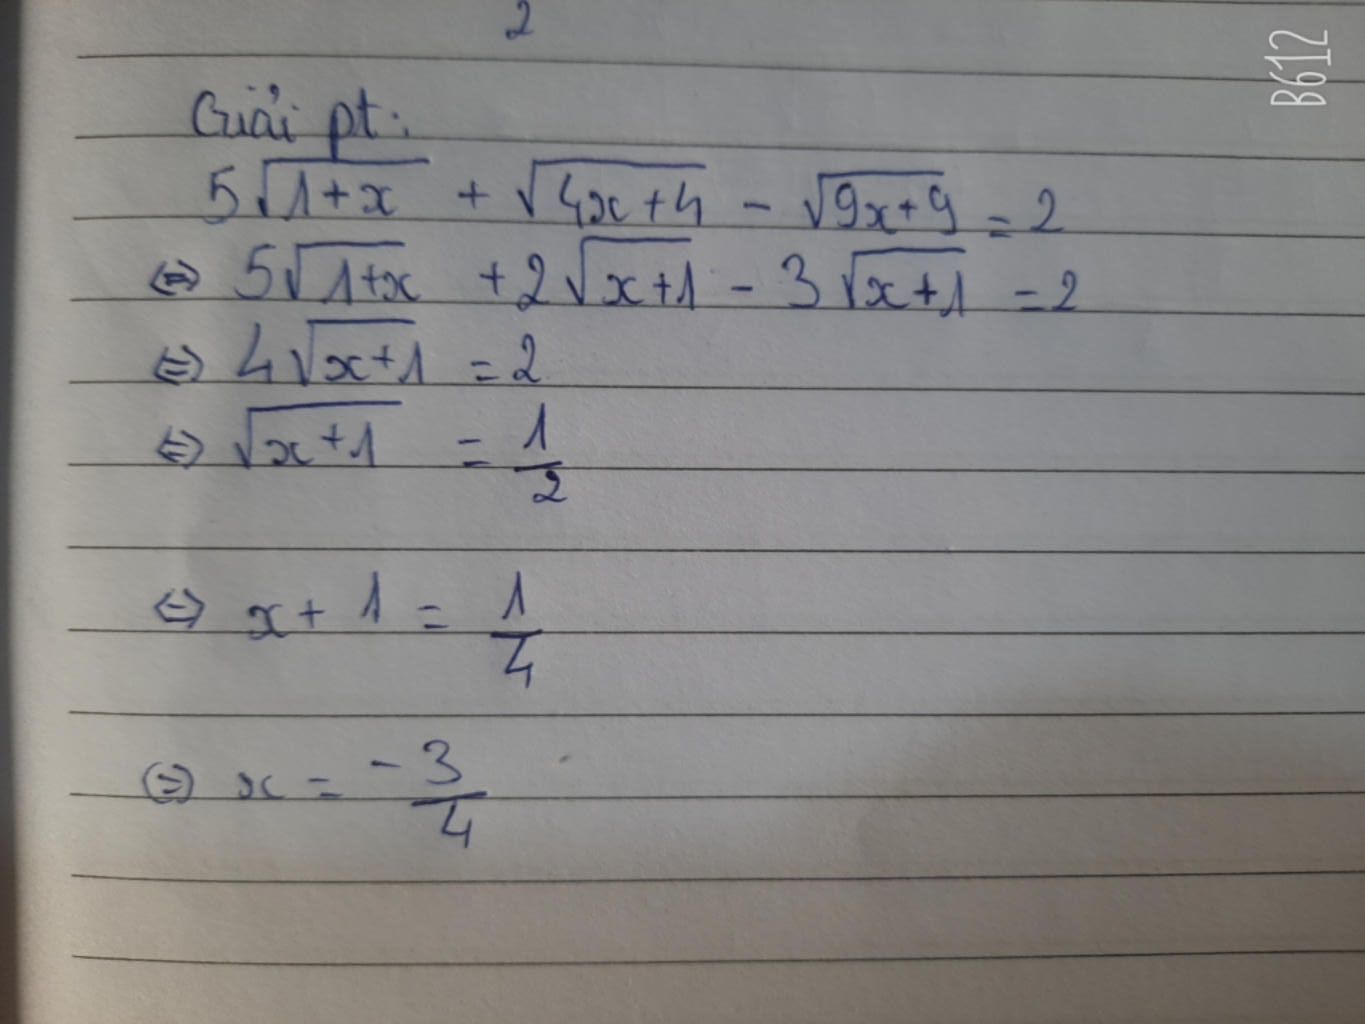 2
B612
Giải pt:
5√(1+x) + √(4x+4) - √(9x+9) = 2
⇔ 5√(1+x) + 2√(x+1) - 3√(x+1) = 2
⇔ 4√(x+1) = 2
⇔ √(x+1) = 1/2
⇔ x + 1 = 1/4
⇔ x = -3/4